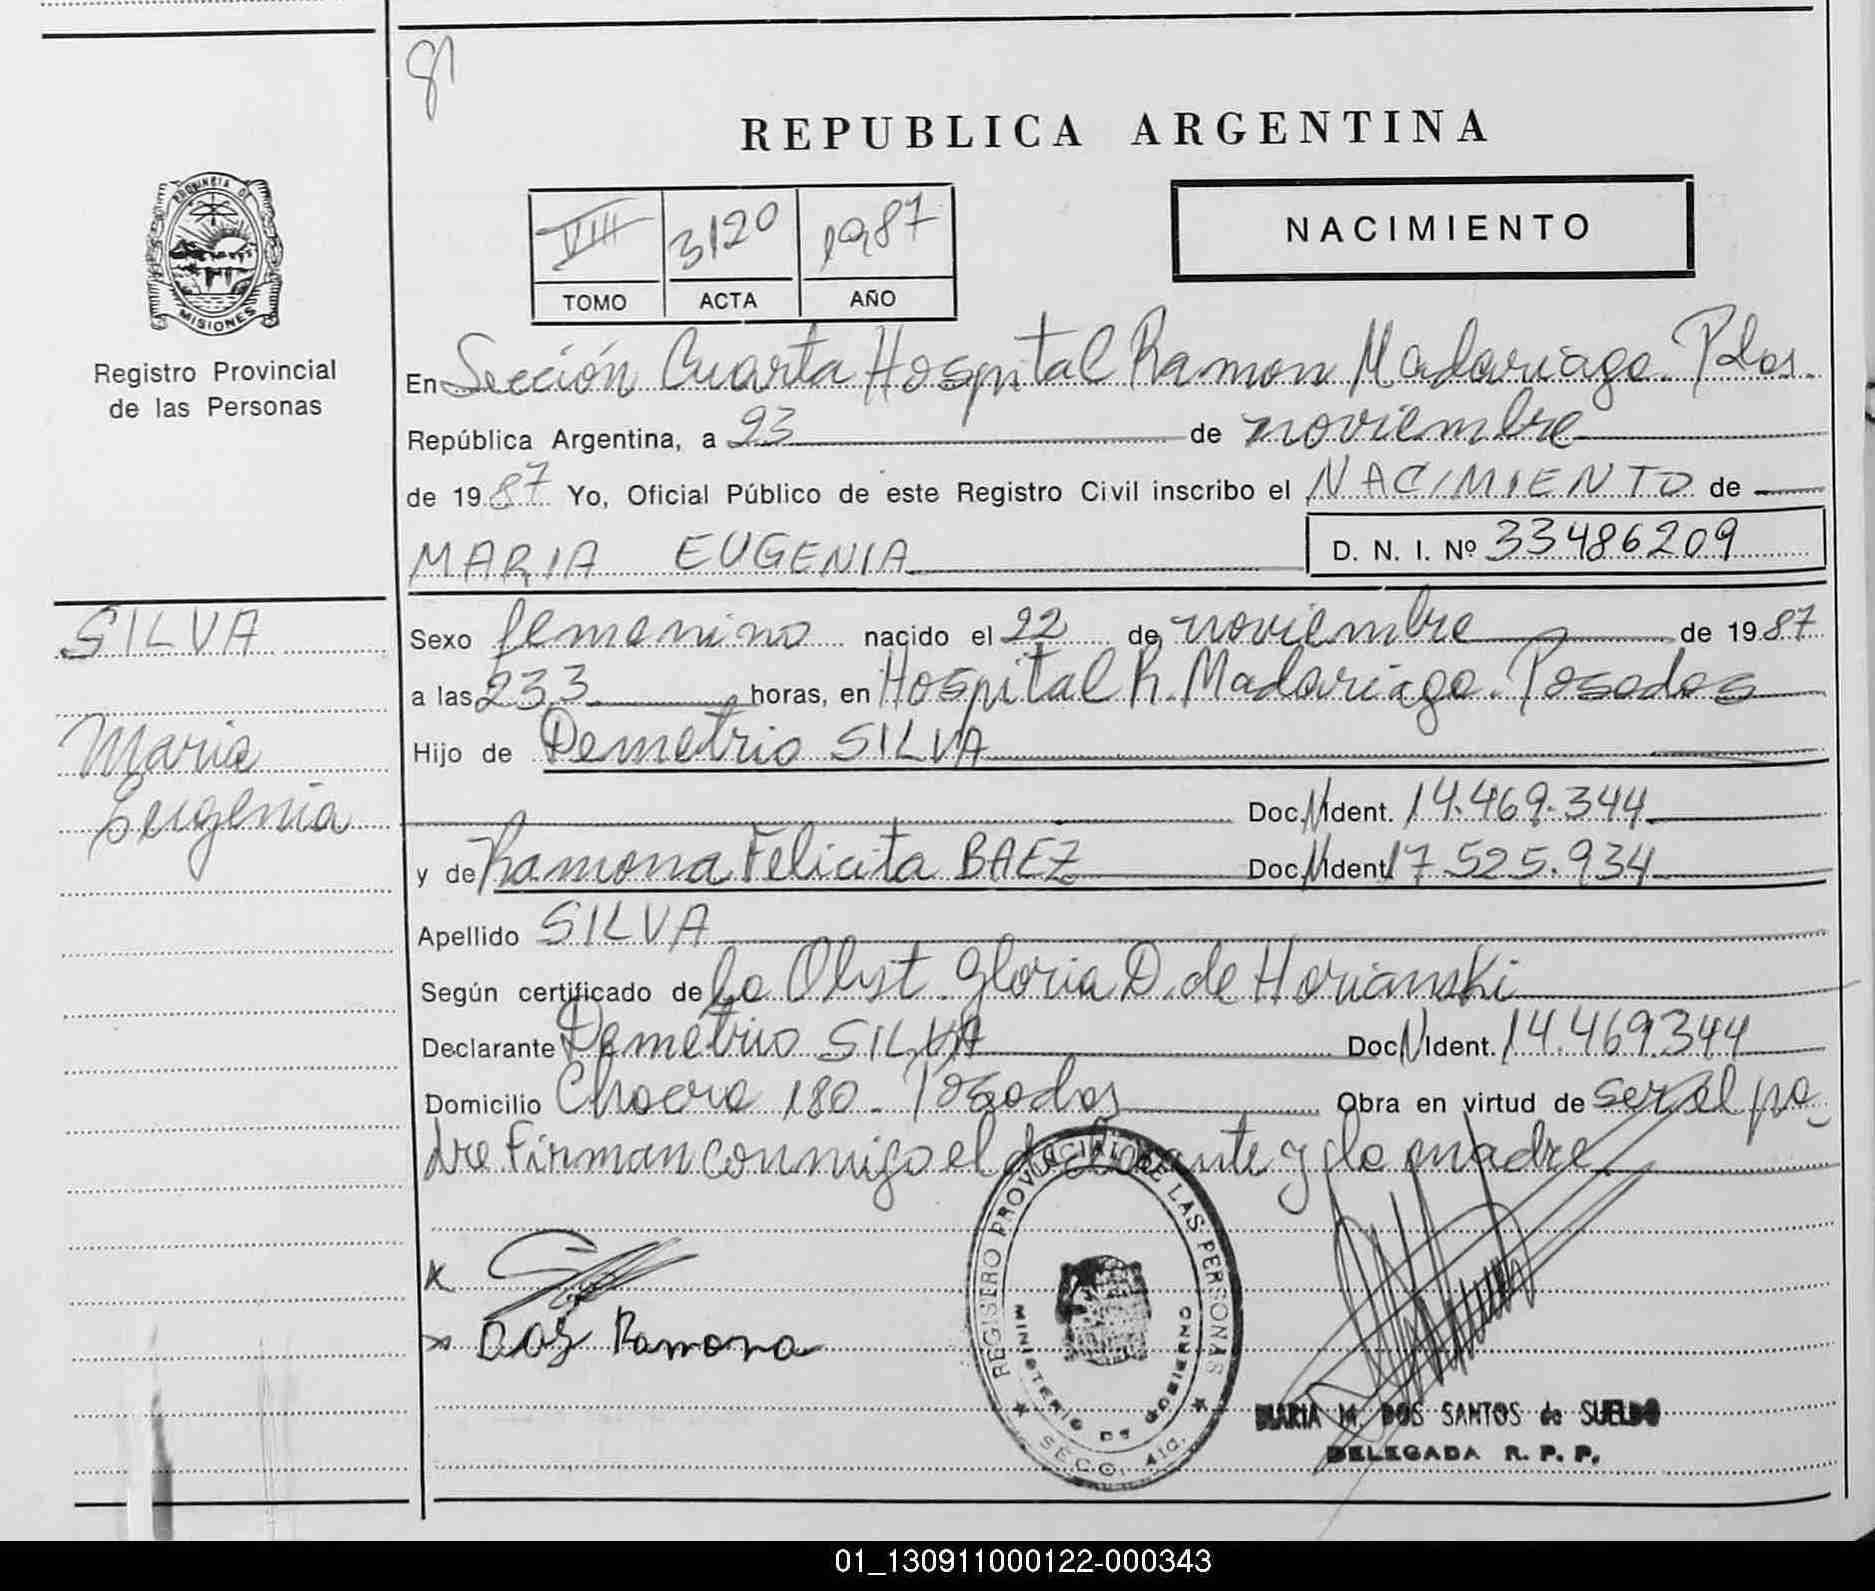 81
REPUBLICA ARGENTINA
PROVINCIA DE
MISIONES
Registro Provincial
de las Personas
VIII 3120 1987
TOMO ACTA AÑO
NACIMIENTO
En Sección Cuarta Hospital Ramon Madariaga. Pdas.
República Argentina, a 23 de noviembre
de 1987 Yo, Oficial Público de este Registro Civil inscribo el NACIMIENTO de
MARIA EUGENIA
D. N. I. Nº 33486209
SILVA
Maria
Eugenia
Sexo femenino nacido el 22 de noviembre de 1987
a las 23,3 horas, en Hospital R. Madariaga. Posadas
Hijo de Demetrio SILVA
Doc. N Ident. 14.469.344
y de Ramona Felicita BAEZ Doc. N Ident 17.525.934
Apellido SILVA
Según certificado de la Obst. Gloria D. de Horianski
Declarante Demetrio SILVA Doc. N Ident. 14.469.344
Domicilio Chacra 180 - Posadas Obra en virtud de ser el pa
dre Firman conmigo el declarante y la madre
x
x Ramona
REGISTRO PROVINCIAL DE LAS PERSONAS
MINISTERIO DE GOBIERNO
SECC. 4ta.
MARIA M. DOS SANTOS de SUELDO
DELEGADA R. P. P.
01_130911000122-000343